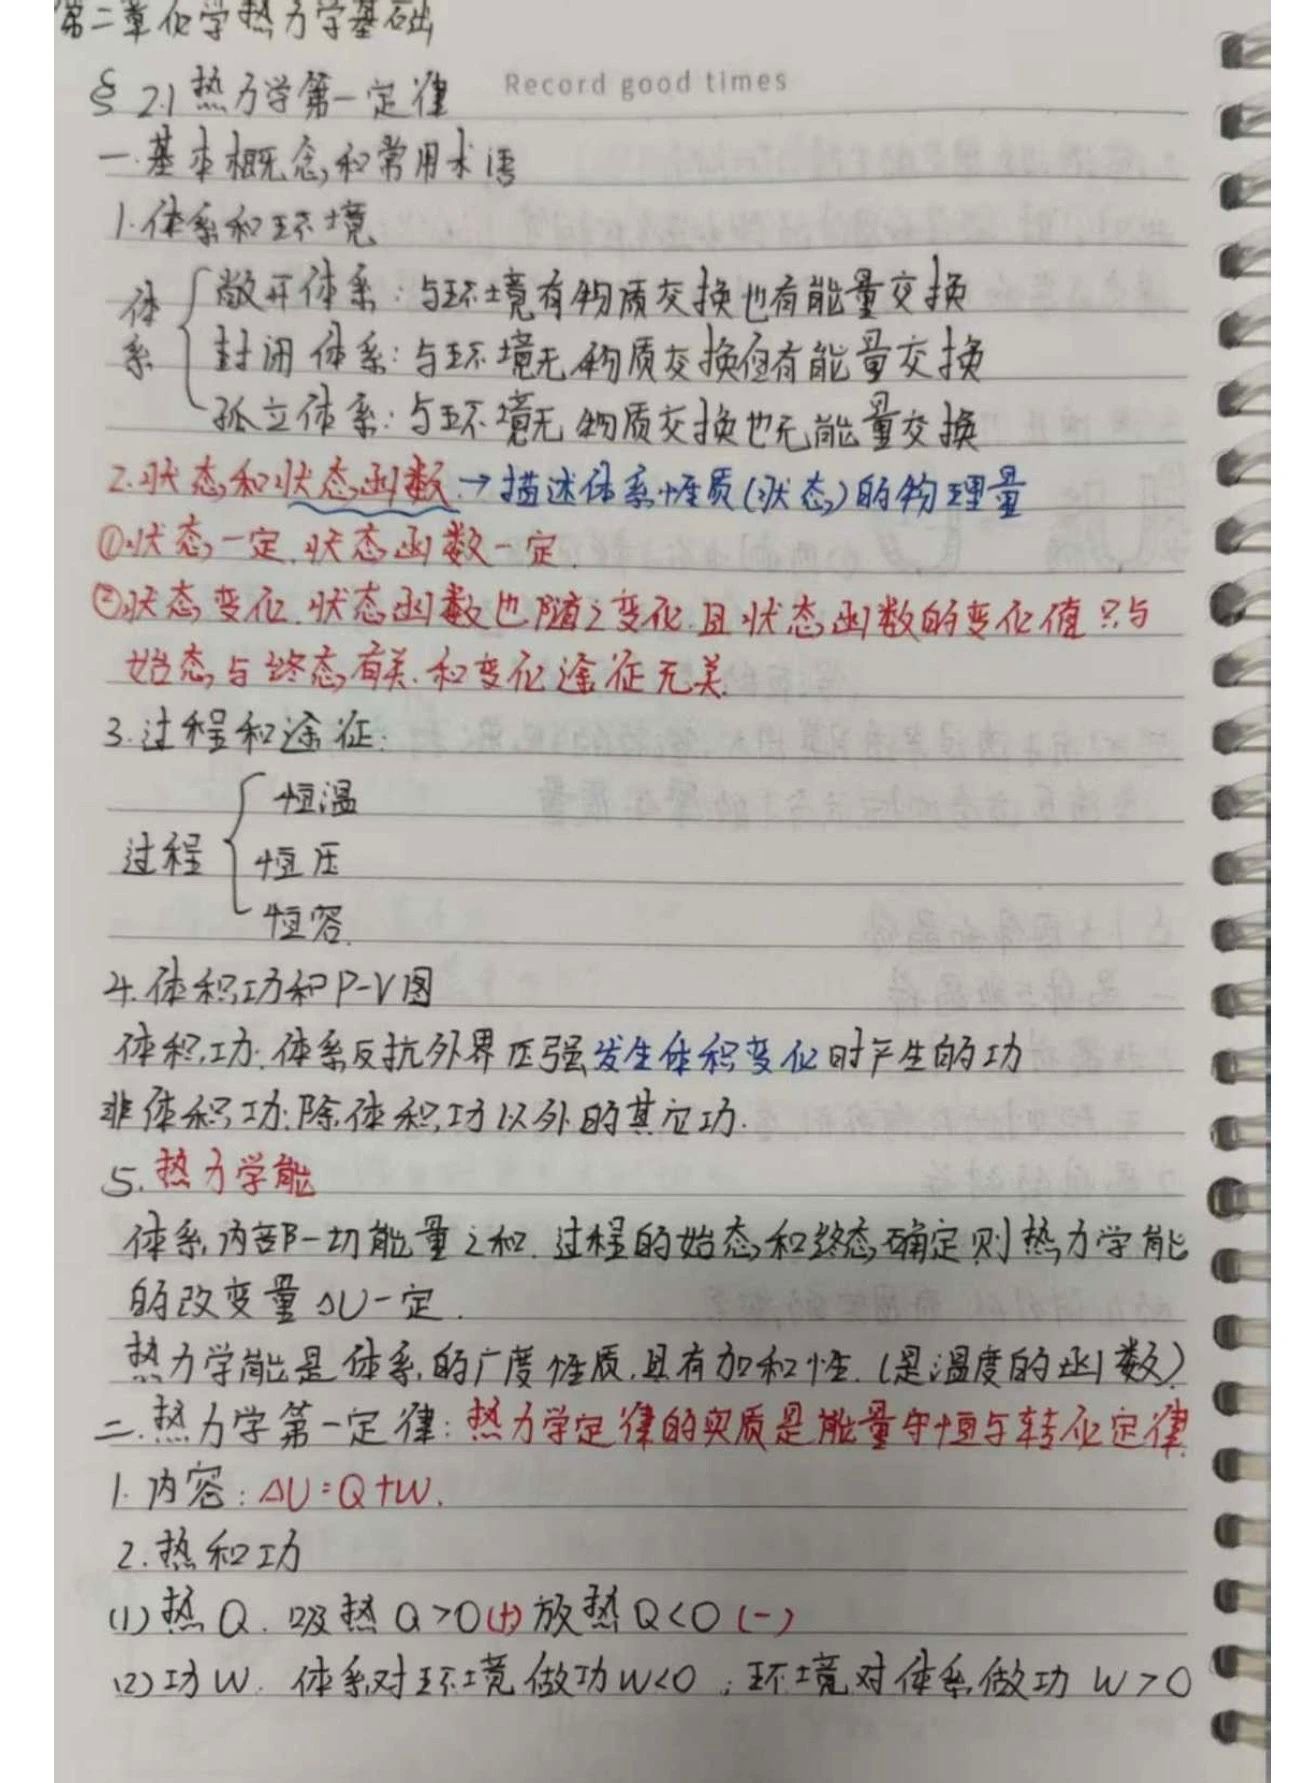 第二章化学热力学基础
Record good times
§ 2.1 热力学第一定律
一.基本概念和常用术语
1.体系和环境
体系
敞开体系：与环境有物质交换也有能量交换
封闭体系：与环境无物质交换但有能量交换
孤立体系：与环境无物质交换也无能量交换
2.状态和状态函数→描述体系性质(状态)的物理量
①状态一定.状态函数一定
②状态变化.状态函数也随之变化.且状态函数的变化值只与
始态与终态有关.和变化途征无关.
3.过程和途征：
过程
恒温
恒压
恒容.
4.体积功和P-V图
体积功：体系反抗外界压强发生体积变化时产生的功
非体积功：除体积功以外的其它功.
5.热力学能
体系内部一切能量之和.过程的始态和终态确定则热力学能
的改变量△U一定.
热力学能是体系的广度性质.具有加和性.(是温度的函数)
二.热力学第一定律：热力学定律的实质是能量守恒与转化定律.
1.内容：△U=Q+W.
2.热和功
(1)热Q.吸热Q>0(+)放热Q<0(-)
(2)功W.体系对环境做功W<0；环境对体系做功 W>0